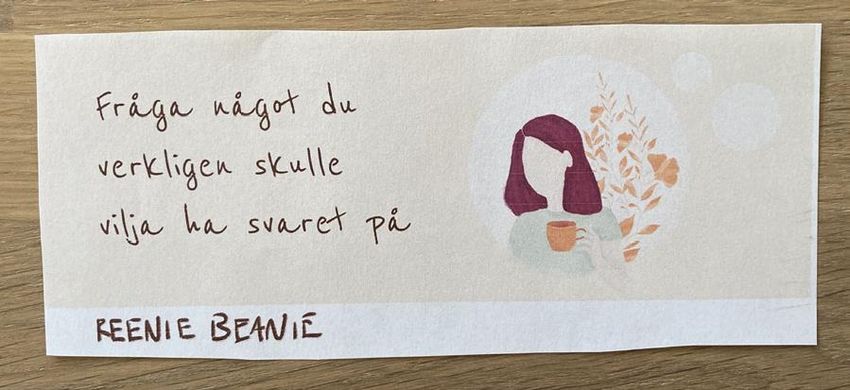 Fråga något du
verkligen skulle
vilja ha svaret på
REENIE BEANIE